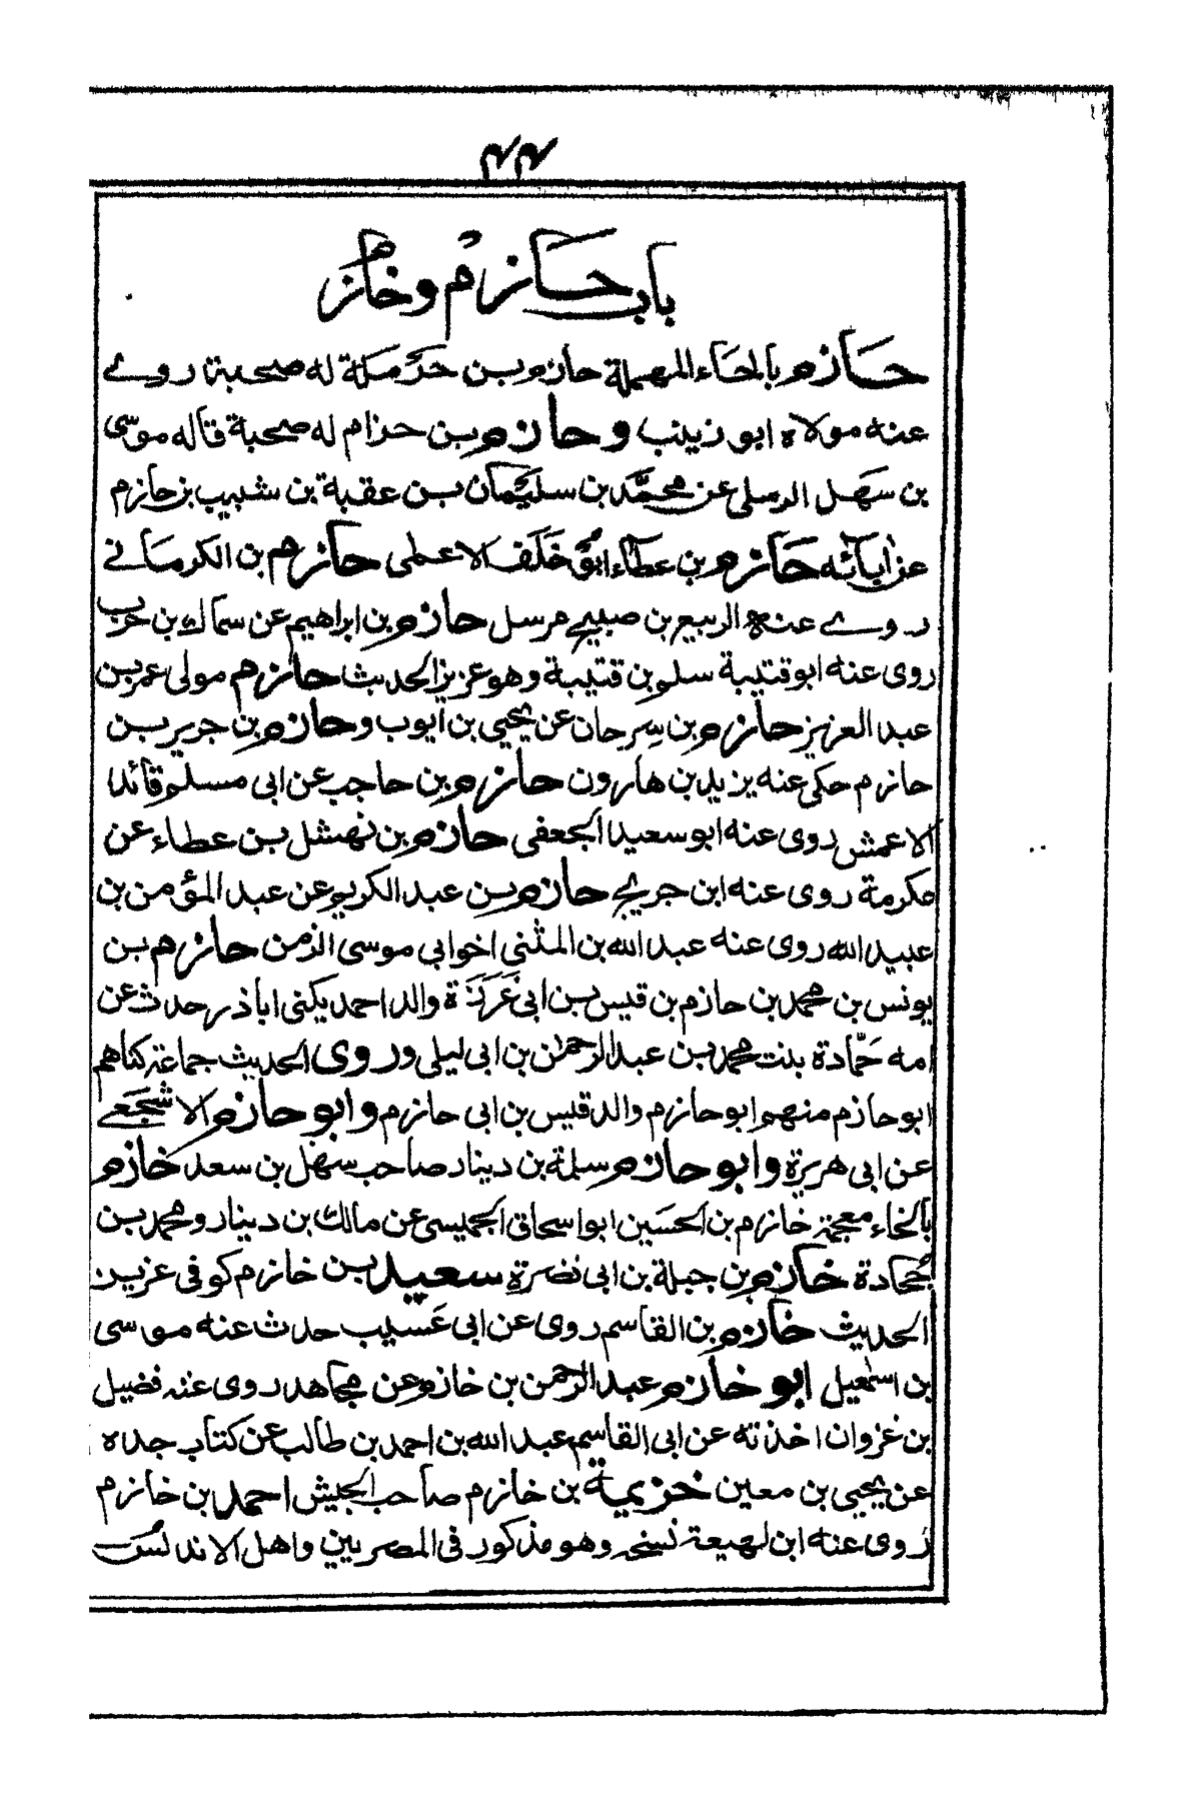 ٤٤
باب حازم وخازم
حازم بالحاء المهملة حازم بن حرملة له صحبة روے
عنه مولاه ابو زينب وحازم بن حزام له صحبة قاله موسى
بن سهل الرملي عن محمد بن سليمان بن عقبة بن شبيب بن حازم
عن آبائه حازم بن عطاء ابو خلف الاعمى حازم بن الكرمانے
روے عنه الربيع بن صبيح مرسل حازم بن ابراهيم عن سماك بن حرب
روى عنه ابو قتيبة سلم بن قتيبة وهو عزيز الحديث حازم مولى عمر بن
عبد العزيز حازم بن سرحان عن يحيى بن ايوب وحازم بن جرير بن
حازم حكى عنه يزيد بن هارون حازم بن حاجب عن ابى مسلم قائد
الاعمش روى عنه ابو سعيد الجعفى حازم بن نهشل بن عطاء عن
عكرمة روى عنه ابن جريج حازم بن عبد الكريم عن عبد المؤمن بن
عبيد الله روى عنه عبد الله بن المثنى اخو ابي موسى الزمن حازم بن
يونس بن محمد بن حازم بن قيس بن ابي غرزة والد احمد يكنى اباذر حدث عن
امه حمّادة بنت محمد بن عبد الرحمٰن بن ابى ليلى وروى الحديث جماعة كناهم
ابو حازم منهم ابو حازم والد قيس بن ابى حازم وابو حازم الاشجعے
عن ابى هريرة وابو حازم سلمة بن دينار صاحب سهل بن سعد خازم
بالخاء معجمة خازم بن الحسين ابو اسحاق الحميسى عن مالك بن دينار ومحمد بن
جُحادة خازم بن جبلة بن ابى نضرة سعيد بن خازم كوفى عزيز
الحديث خازم بن القاسم روى عن ابى عَسيب حدث عنه موسى
بن اسمٰعيل ابو خازم عبد الرحمن بن خازم عن مجاهد روى عنه فضيل
بن غزوان اخذته عن ابى القاسم عبد الله بن احمد بن طالب عن كتاب جده
عن يحيى بن معين خزيمة بن خازم صاحب الجيش احمد بن خازم
روى عنه ابن لهيعة نسخة وهو مذكور فى المصريين واهل الاندلس